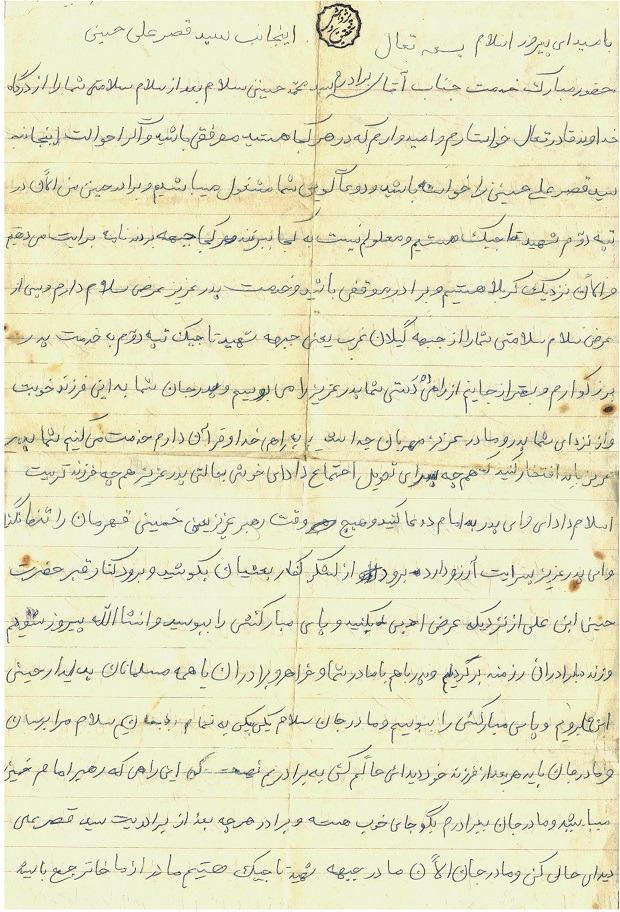 با امید ای پیروز اسلام بسمه تعال اینجانب سید قصر علی حسینی
حضور مبارک خدمت جناب آقای برادرم سید محمد حسینی سلام بعد از سلام سلامتی شما را از درگاه
خداوند قادر تعال خواستارم و امیدوارم که در هر کجا هستید موفق باشید و اگر احوالت اینجانب
سید قصر علی حسینی را خواسته باشید و دعا گویی شما مشغول میباشیم و برادر حسینی من الآن در
تپه دوم شهید تاجیک هستیم و معلوم نیست به کجا ببرند هر کجا جبهه بردند نامه برایت می دهیم
و الآن نزدیک کربلا هستیم و برادر موفق باشید و خدمت پدر عزیز عرض سلام دارم و پس از
عرض سلام سلامتی شما را از جبهه گیلان غرب یعنی جبهه شهید تاجیک تپه دوم به خدمت پدر
بزرگوارم و بقرار جانیم از راهی دستی شما پدر عزیز را می بوسیم و پدر جان شما به این فرزند خوبت
و از نزدای شما پدر و مادر عزیز مهربان جدا شدیم براهی خدا و قرآن دارم خدمت می کنیم شما پدر
عزیز باید افتخار کنید که هم چه پسرای تحویل اجتماع دادای خوش بحالتی پدر عزیز هم چه فرزند تربیت
اسلام دادای و ای پدر به امام دعا کنید و هیچ وقت رهبر عزیز یعنی خمینی قهرمان را تنها نگذا
و ای پدر عزیز پسرایت آرزو دارد برود از لشکر کفار بعثیان بکوشید و برود کنار قبر حضرت
حسینی ابن علی از نزدیک عرض ادبی بکنید و پاسی مبارکشی را ببوسید و انشاالله پیروز شویم
و زنده برادران رزمنه برگردیم و پدر باهم با مادر شما و خواهر و برادران با همه مسلمانان به دیدار حسینی
ابن علی برویم و پاسی مبارکشی را ببوسیم و مادر جان سلام یکی یکی به تمام سلام مرا برسان
و مادر جان باید هر بعد از فرزند خود دیدای حالم کنی به برادریم این راهی که رهبر امام خمینی
میباشید و مادر جان ببرادرم بگو جای خوب هسته و برادر هر چه بعد از برادریت سید قصر علی
دیدای حالی کنی و مادر جان الآن ما در جبهه شهید تاجیک هستیم مادر از ما خاتر جمع باشید